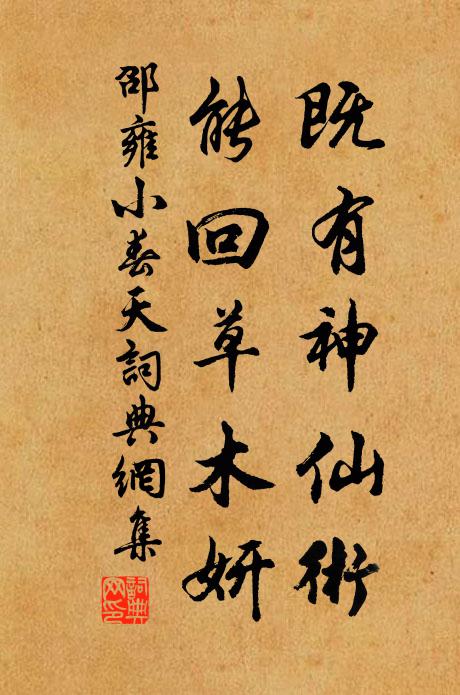 既有神仙術
能回草木妍
邵雍小春天詞典網集
詞典網印